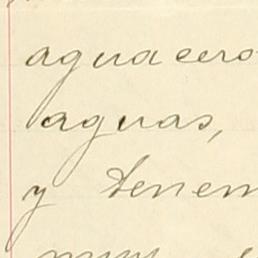 aguacero
aguas,
y tenem
muy